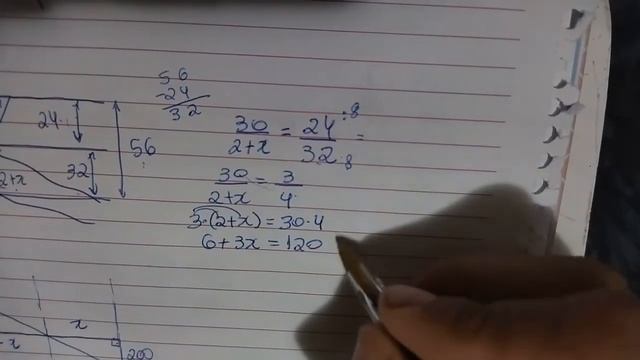 56
-24
32
24
56
32
2+x
30/2+x = 24/32 :8 :8 =
30/2+x = 3/4
3·(2+x) = 30·4
6+3x = 120
x
-x
200